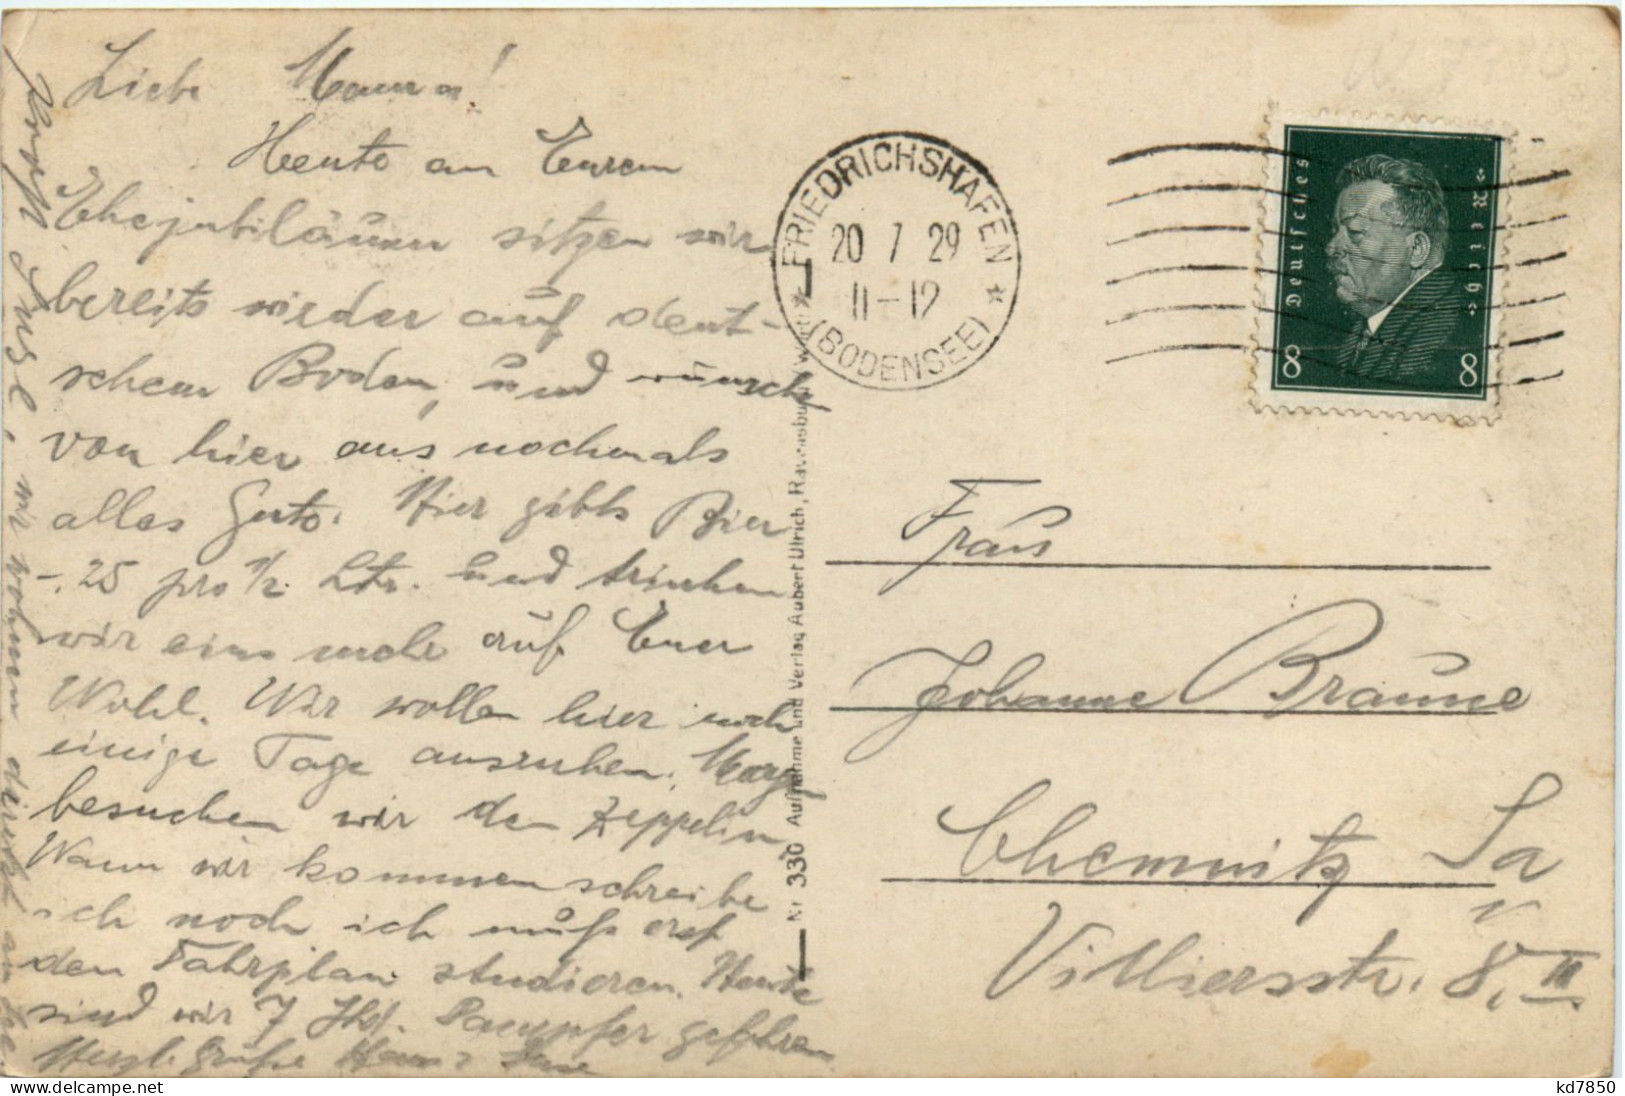 Liebe Mama!
Heute an Eurem
Ehejubiläum sitzen wir
bereits wieder auf deut-
schem Boden, und wünsch
von hier aus nochmals
alles Gute. Hier gibts Bier
-.25 pro 1/2 Ltr. und trinken
wir eins mehr auf Euer
Wohl. Wir wollen hier noch
einige Tage ausruhen. Morg
besuchen wir den Zeppelin,
Wann wir kommen schreibe
ich noch ich muß erst
den Fahrplan studieren. Heute
sind wir 7 Std. Dampfer gefahren
Herzl. Grüße Hans
wir wohnen direkt am See.
Nr. 330 Aufnahme und Verlag Aubert Ulrich, Ravensburg
FRIEDRICHSHAFEN
20 7 29
11-12
(BODENSEE)
Deutsches Reich
8 8
Frau
Johanne Braune
Chemnitz Sa
Villiersstr. 8, II.
kd7850